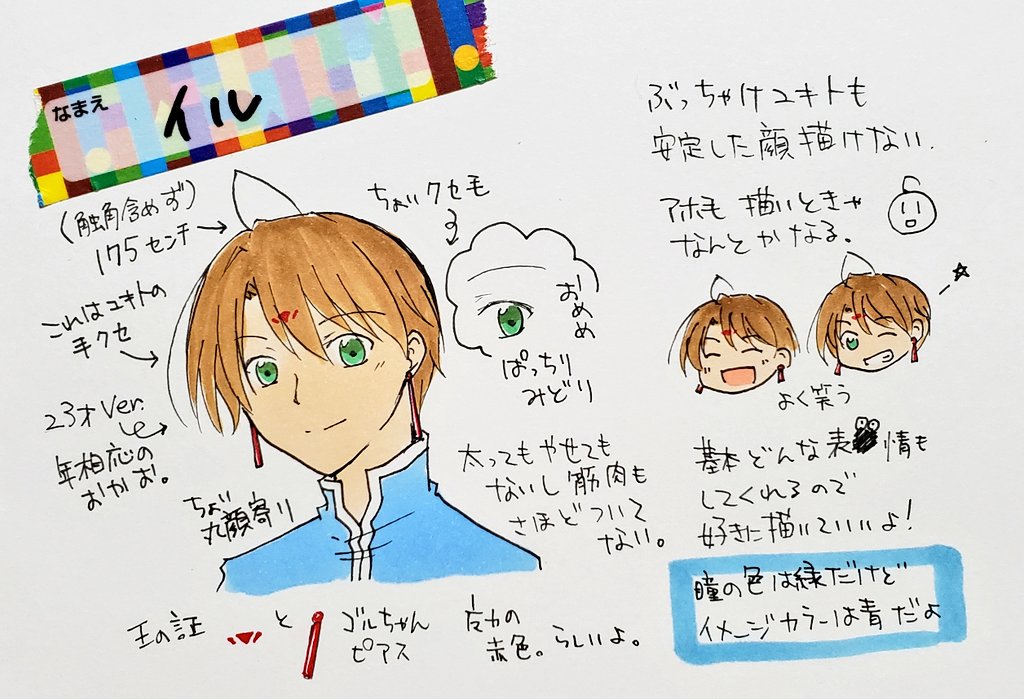 なまえ イル
ぶっちゃけユキトも
安定した顔描けない.
アホ毛 描いときゃ
なんとかなる。
(触角含めず)
175センチ
ちょいクセ毛
これはユキトの
手クセ
おめめ
ぱっちり
みどり
23才 Ver.
年相応の
おかお。
ちょい
丸顔寄り
太ってもやせても
ないし筋肉も
さほどついて
ない。
よく笑う
基本どんな表情も
してくれるので
好きに描いていいよ!
瞳の色は緑だけど
イメージカラーは青だよ
王の証
と
ゴルちゃん
ピアス
赤色。らしいよ。